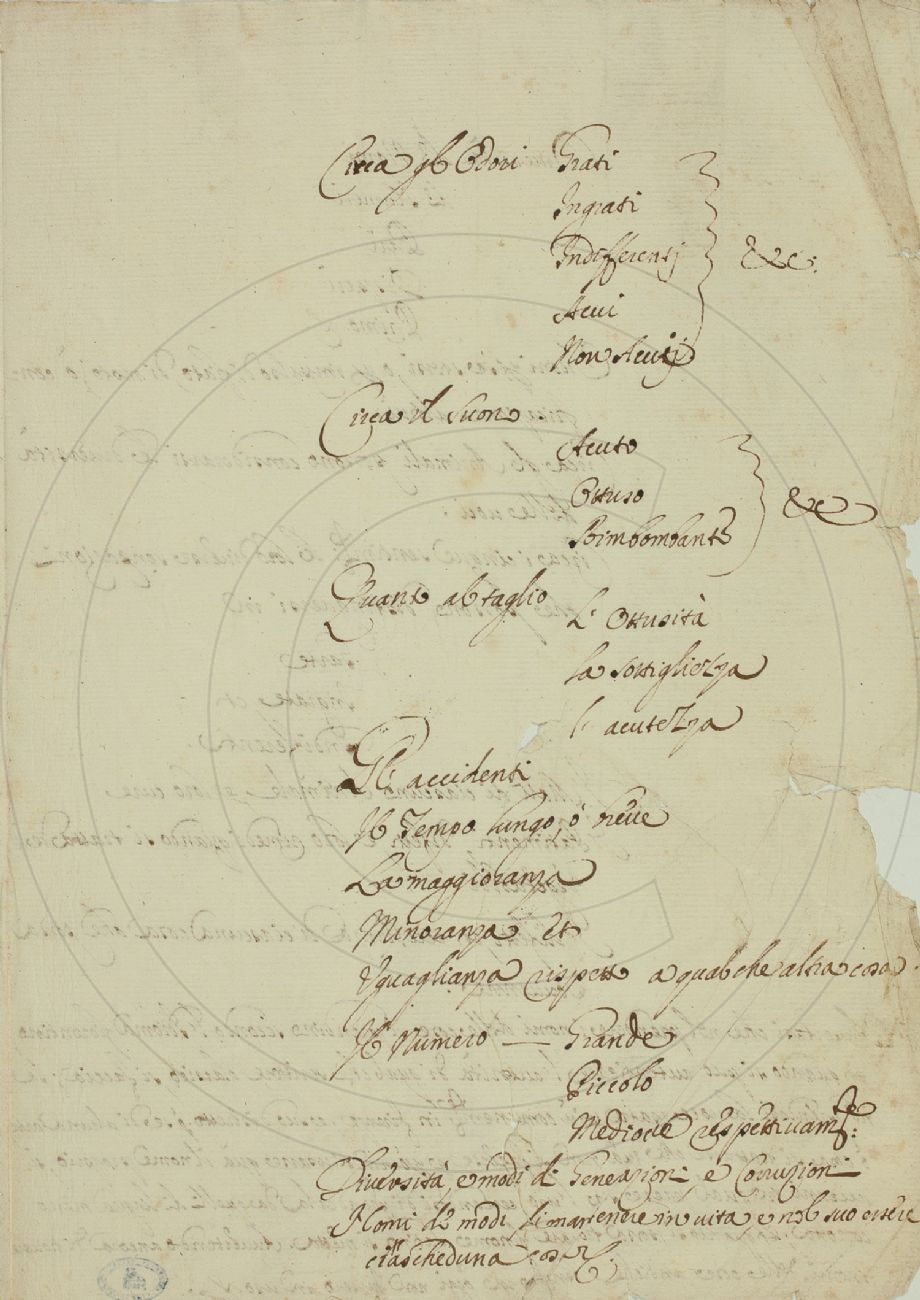 Circa gl Odori Grati
Ingrati
Indifferentj
Acui
Non Acuij
&c:
Circa il suono
Acuto
Ottuso
Rimbombante
&c
Quanto al taglio
L' Ottusità
La sottigliezza
l' acutezza
Gl' accidenti
Il Tempo lungo, ò breve
La maggioranza
Minoranza et
Uguaglianza rispetto a qualche altra cosa.
Il Numero — Grande
Piccolo
Mediocre respettivamte:
Diversità, e modi di Generazioni, e Corruzioni
Nomi de modi di mantenere in vita, e nel suo essere
ciascheduna cosa